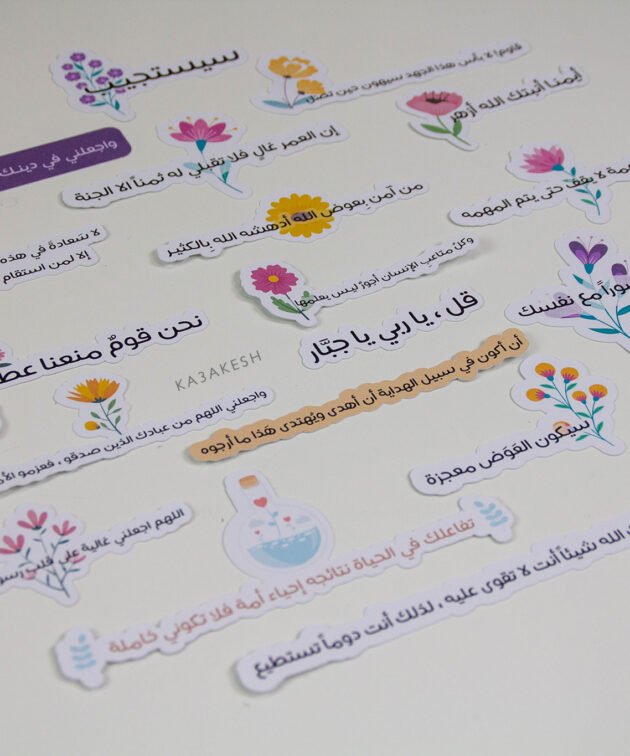 سيستجيب
قاوم! لا بأس هذا الجهد سيهون حين تصل
أينما أنبتك الله أزهر
واجعلني في دينك
إن العمر غالٍ فلا تقبلي له ثمناً الا الجنة
لا يقف حتى يتم المهمه
من آمن بعوض الله أدهشه الله بالكثير
لا سَعادةَ في هذه
إلا لمن استقام
وكلّ متاعب الإنسان أجورٌ ليس يعلمها
مع نفسك
قل ، يا ربي يا جبَّار
نحن قومٌ منعنا
KA3AKESH
أن أكون في سبيل الهداية أن أهدى ويُهتدى هَذا ما أرجوه
واجعلني اللهم من عبادك الذين صدقو ، فعزمو
سيكون العَوَض معجزة
اللهم اجعلني غالية على قلب
تفاعلك في الحياة نتائجه إحياء أمة فلا تكوني خاملة
الله شيئاً أنت لا تقوى عليه ، لذلك أنت دوماً تستطيع